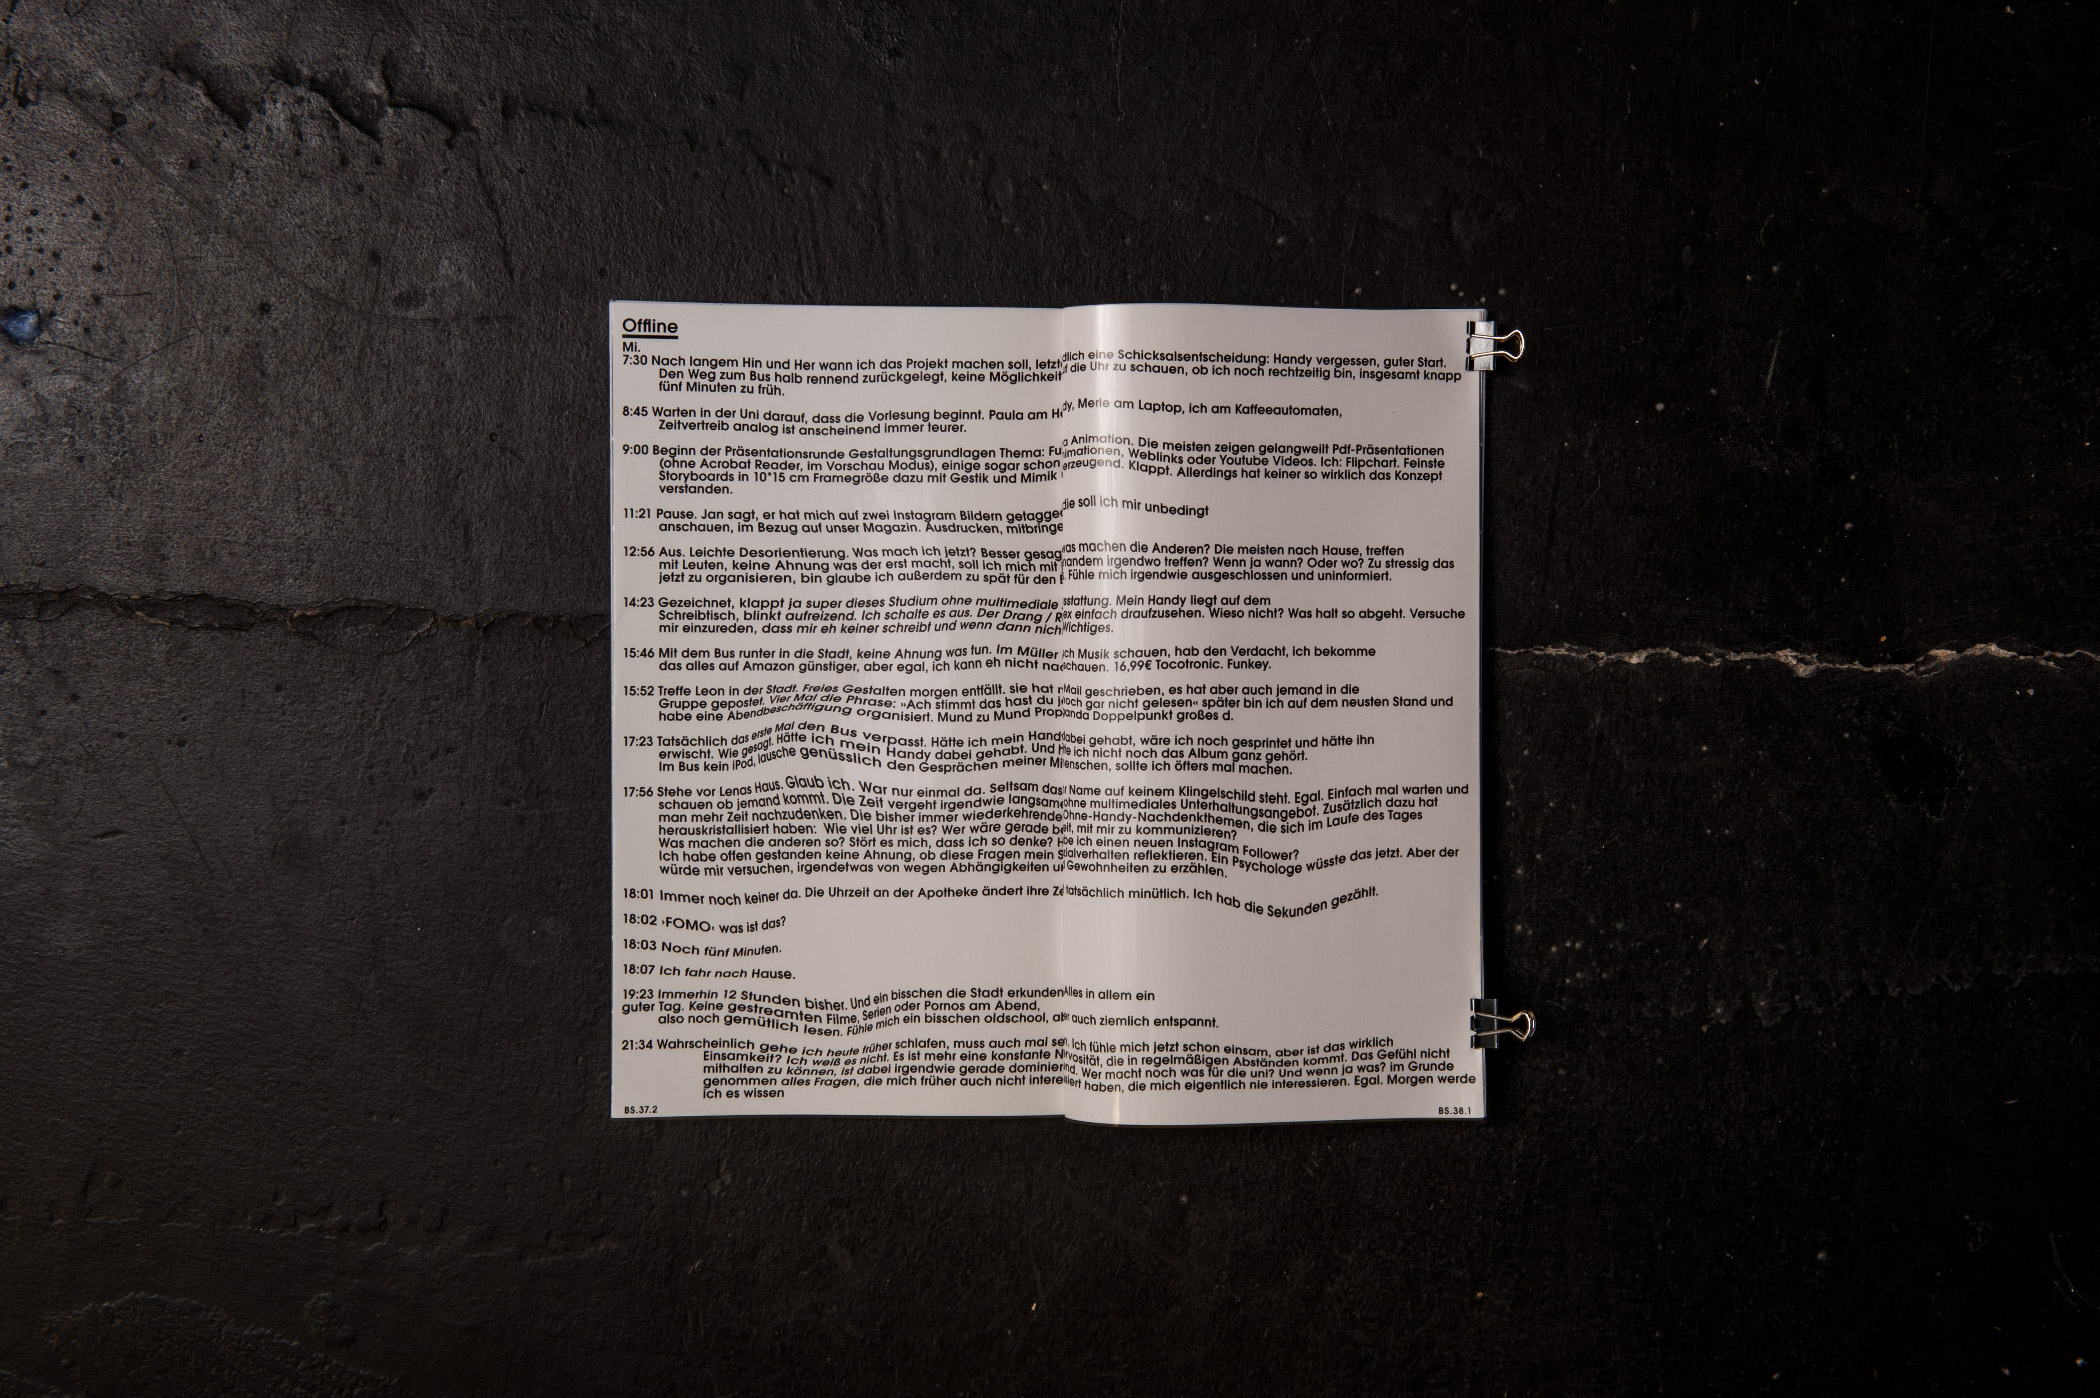 Offline
Mi.
7:30 Nach langem Hin und Her wann ich das Projekt machen soll, letzt dlich eine Schicksalsentscheidung: Handy vergessen, guter Start.
Den Weg zum Bus halb rennend zurückgelegt, keine Möglichkeit f die Uhr zu schauen, ob ich noch rechtzeitig bin, insgesamt knapp
fünf Minuten zu früh.
8:45 Warten in der Uni darauf, dass die Vorlesung beginnt. Paula am H dy, Merle am Laptop, ich am Kaffeeautomaten,
Zeitvertreib analog ist anscheinend immer teurer.
9:00 Beginn der Präsentationsrunde Gestaltungsgrundlagen Thema: Fu a Animation. Die meisten zeigen gelangweilt Pdf-Präsentationen
(ohne Acrobat Reader, im Vorschau Modus), einige sogar schon imationen, Weblinks oder Youtube Videos. Ich: Flipchart. Feinste
Storyboards in 10*15 cm Framegröße dazu mit Gestik und Mimik erzeugend. Klappt. Allerdings hat keiner so wirklich das Konzept
verstanden.
11:21 Pause. Jan sagt, er hat mich auf zwei Instagram Bildern getagge die soll ich mir unbedingt
anschauen, im Bezug auf unser Magazin. Ausdrucken, mitbringe
12:56 Aus. Leichte Desorientierung. Was mach ich jetzt? Besser gesag as machen die Anderen? Die meisten nach Hause, treffen
mit Leuten, keine Ahnung was der erst macht, soll ich mich mit andem irgendwo treffen? Wenn ja wann? Oder wo? Zu stressig das
jetzt zu organisieren, bin glaube ich außerdem zu spät für den Fühle mich irgendwie ausgeschlossen und uninformiert.
14:23 Gezeichnet, klappt ja super dieses Studium ohne multimediale sstattung. Mein Handy liegt auf dem
Schreibtisch, blinkt aufreizend. Ich schalte es aus. Der Drang / R ex einfach draufzusehen. Wieso nicht? Was halt so abgeht. Versuche
mir einzureden, dass mir eh keiner schreibt und wenn dann nich Wichtiges.
15:46 Mit dem Bus runter in die Stadt, keine Ahnung was tun. Im Müller ich Musik schauen, hab den Verdacht, ich bekomme
das alles auf Amazon günstiger, aber egal, ich kann eh nicht na schauen. 16,99€ Tocotronic. Funkey.
15:52 Treffe Leon in der Stadt. Freies Gestalten morgen entfällt. sie hat Mail geschrieben, es hat aber auch jemand in die
Gruppe gepostet. Vier Mal die Phrase: »Ach stimmt das hast du och gar nicht gelesen« später bin ich auf dem neusten Stand und
habe eine Abendbeschäftigung organisiert. Mund zu Mund Prop anda Doppelpunkt großes d.
17:23 Tatsächlich das erste Mal den Bus verpasst. Hätte ich mein Hand dabei gehabt, wäre ich noch gesprintet und hätte ihn
erwischt. Wie gesagt. Hätte ich mein Handy dabei gehabt. Und te ich nicht noch das Album ganz gehört.
Im Bus kein iPod, lausche genüsslich den Gesprächen meiner Mi enschen, sollte ich öfters mal machen.
17:56 Stehe vor Lenas Haus. Glaub ich. War nur einmal da. Seltsam das Name auf keinem Klingelschild steht. Egal. Einfach mal warten und
schauen ob jemand kommt. Die Zeit vergeht irgendwie langsam ohne multimediales Unterhaltungsangebot. Zusätzlich dazu hat
man mehr Zeit nachzudenken. Die bisher immer wiederkehrende Ohne-Handy-Nachdenkthemen, die sich im Laufe des Tages
herauskristallisiert haben: Wie viel Uhr ist es? Wer wäre gerade be eit, mit mir zu kommunizieren?
Was machen die anderen so? Stört es mich, dass ich so denke? H be ich einen neuen Instagram Follower?
Ich habe offen gestanden keine Ahnung, ob diese Fragen mein S ialverhalten reflektieren. Ein Psychologe wüsste das jetzt. Aber der
würde mir versuchen, irgendetwas von wegen Abhängigkeiten u Gewohnheiten zu erzählen.
18:01 Immer noch keiner da. Die Uhrzeit an der Apotheke ändert ihre Ze tatsächlich minütlich. Ich hab die Sekunden gezählt.
18:02 ›FOMO‹ was ist das?
18:03 Noch fünf Minuten.
18:07 Ich fahr nach Hause.
19:23 Immerhin 12 Stunden bisher. Und ein bisschen die Stadt erkunden Alles in allem ein
guter Tag. Keine gestreamten Filme, Serien oder Pornos am Abend,
also noch gemütlich lesen. Fühle mich ein bisschen oldschool, aber auch ziemlich entspannt.
21:34 Wahrscheinlich gehe ich heute früher schlafen, muss auch mal se Ich fühle mich jetzt schon einsam, aber ist das wirklich
Einsamkeit? Ich weiß es nicht. Es ist mehr eine konstante Nervosität, die in regelmäßigen Abständen kommt. Das Gefühl nicht
mithalten zu können, ist dabei irgendwie gerade dominierend. Wer macht noch was für die uni? Und wenn ja was? im Grunde
genommen alles Fragen, die mich früher auch nicht interessiert haben, die mich eigentlich nie interessieren. Egal. Morgen werde
ich es wissen
BS.37.2
BS.38.1